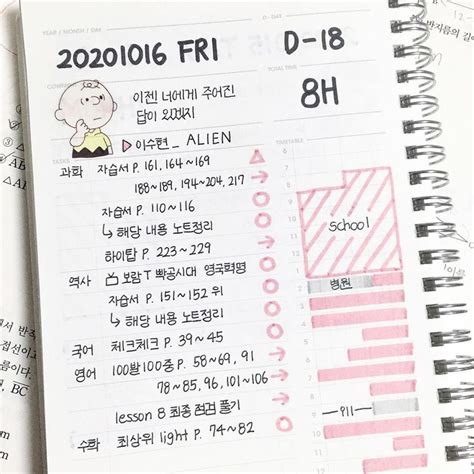 YEAR / MONTH / DAY
D-DAY
20201016 FRI
D-18
COMMENT
TOTAL TIME
이젠 너에게 주어진
답이 있겠지
8H
▶ 이수현 _ ALIEN
TASKS
TIMETABLE
과학 자습서 P. 161, 164~169 △
188~189, 194~204, 217 →
자습서 P. 110~116 ○
↳ 해당 내용 노트정리 ○
하이탑 P. 223~229 →
역사 보람T 빡공시대 영국혁명 ○
자습서 P. 151~152 위 ○
↳ 해당 내용 노트정리 ○
국어 체크체크 P. 39~45 →
영어 100발100중 P. 58~69, 91 →
78~85, 96, 101~106 →
lesson 8 최종 점검 풀기 ○
수학 최상위 light P. 74~82 ○
6
7
8
9
10
11
12
1
school
2
병원
3
4
5
6
7
8
9
밥
10
11
12
BC